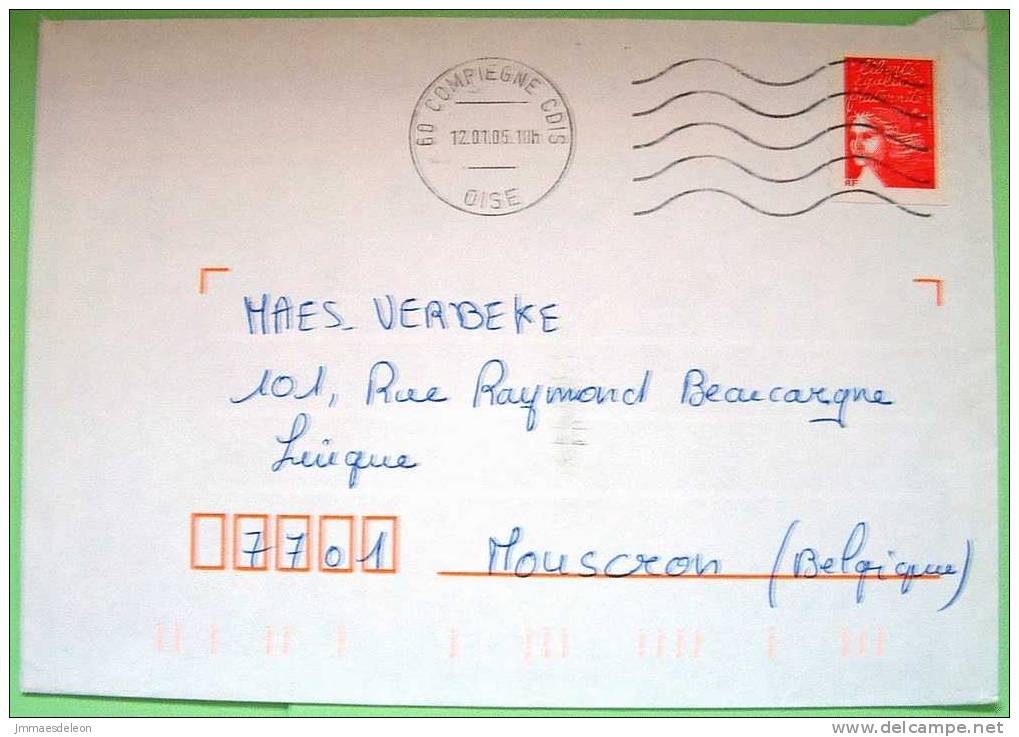 60 COMPIEGNE CDIS
12.01.05.18h
OISE
liberté
égalité
fraternité
RF
MAES-VERBEKE
101, Rue Raymond Beaucargne
Luigne
7701 Mouscron (Belgique)
jmmaesdeleon
www.delcampe.net